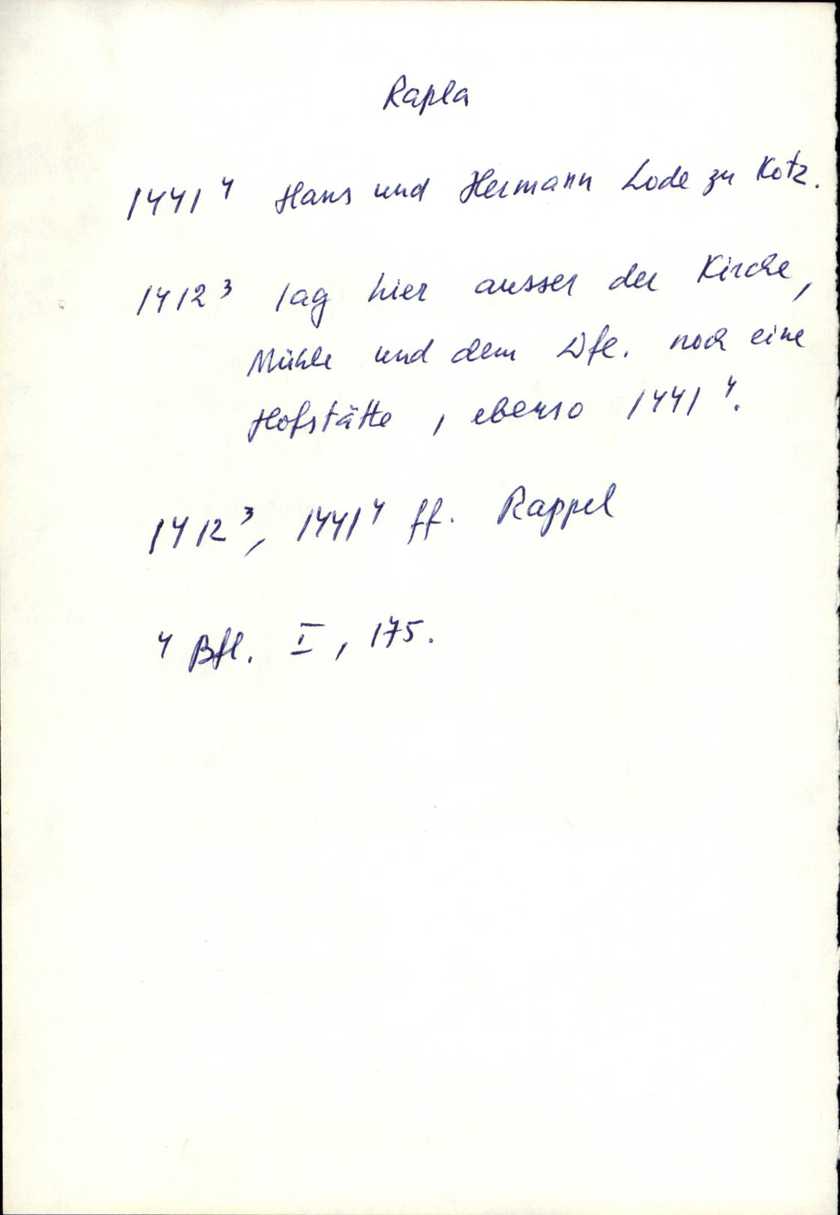 Rapla
1441⁴ Hans und Hermann Lode zu Kotz.
1412³ lag hier ausser der Kirche,
Mühle und dem Dfe. noch eine
Hofstätte, ebenso 1441⁴.
1412³, 1441⁴ ff. Rappel
⁴ Bfl. I, 175.